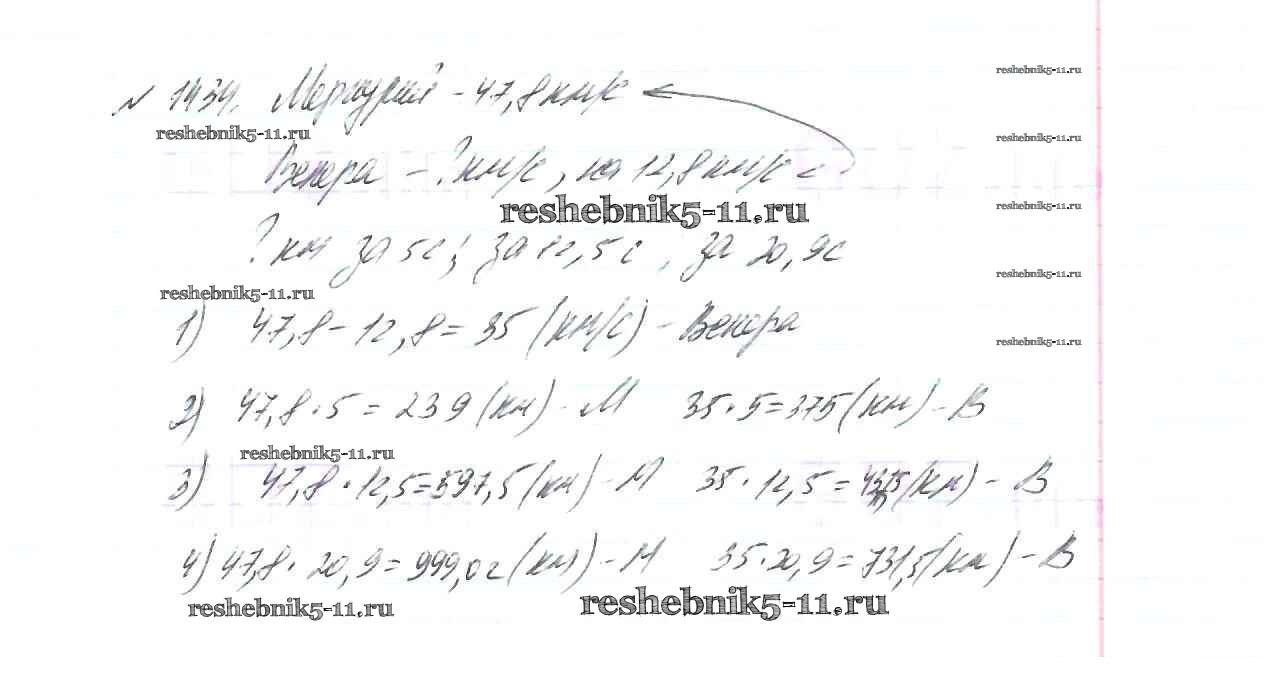 № 1434. Меркурий - 47,8 км/с
reshebnik5-11.ru
reshebnik5-11.ru
reshebnik5-11.ru
Венера - ? км/с, на 12,8 км/с <
reshebnik5-11.ru
reshebnik5-11.ru
? км за 5с; за 12,5с, за 20,9с
reshebnik5-11.ru
reshebnik5-11.ru
1) 47,8 - 12,8 = 35 (км/с) - Венера
reshebnik5-11.ru
2) 47,8 · 5 = 239 (км) - М 35 · 5 = 375 (км) - В
reshebnik5-11.ru
3) 47,8 · 12,5 = 597,5 (км) - М 35 · 12,5 = (км) - В
4) 47,8 · 20,9 = 999,02 (км) - М 35 · 20,9 = 731,5 (км) - В
reshebnik5-11.ru
reshebnik5-11.ru